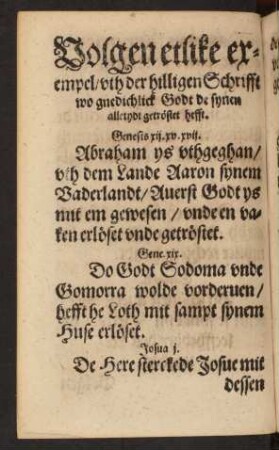 Volgen etlike ex-
empel/ vth der hilligen Schrifft
wo gnedichlick Godt de synen
alletydt getröstet hefft.
Genesis xij. xv. xvij.
Abraham ys vthgeghan/
vth dem Lande Aaron synem
Vaderlandt/ Auerst Godt ys
mit em gewesen / vnde en va-
ken erlöset vnde getröstet.
Gene. xix.
Do Godt Sodoma vnde
Gomorra wolde vorderuen/
hefft he Loth mit sampt synem
Huse erlöset.
Josua j.
De Here sterckede Josue mit
dessen